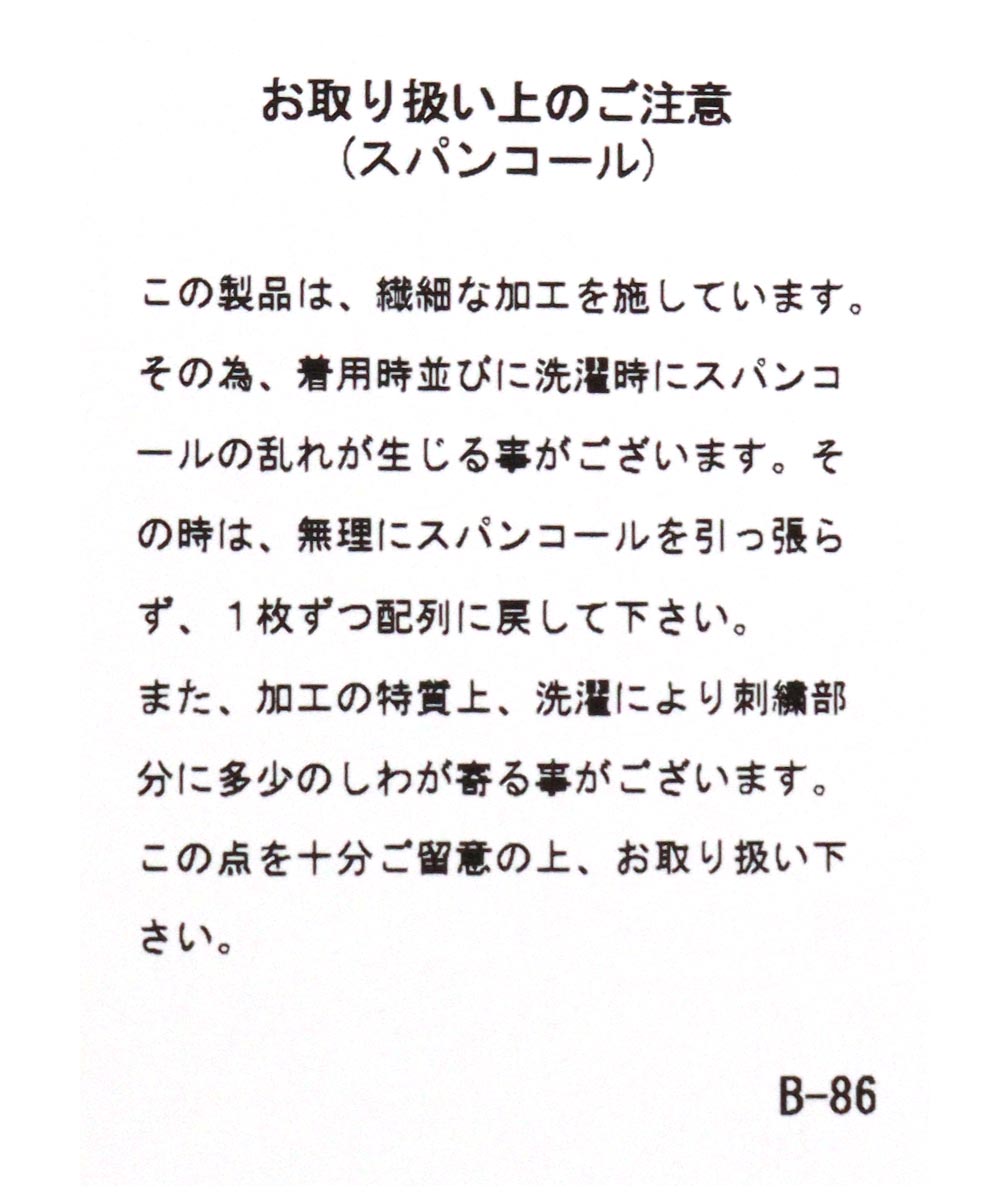 お取り扱い上のご注意
（スパンコール）
この製品は、繊細な加工を施しています。
その為、着用時並びに洗濯時にスパンコ
ールの乱れが生じる事がございます。そ
の時は、無理にスパンコールを引っ張ら
ず、１枚ずつ配列に戻して下さい。
また、加工の特質上、洗濯により刺繍部
分に多少のしわが寄る事がございます。
この点を十分ご留意の上、お取り扱い下
さい。
B-86